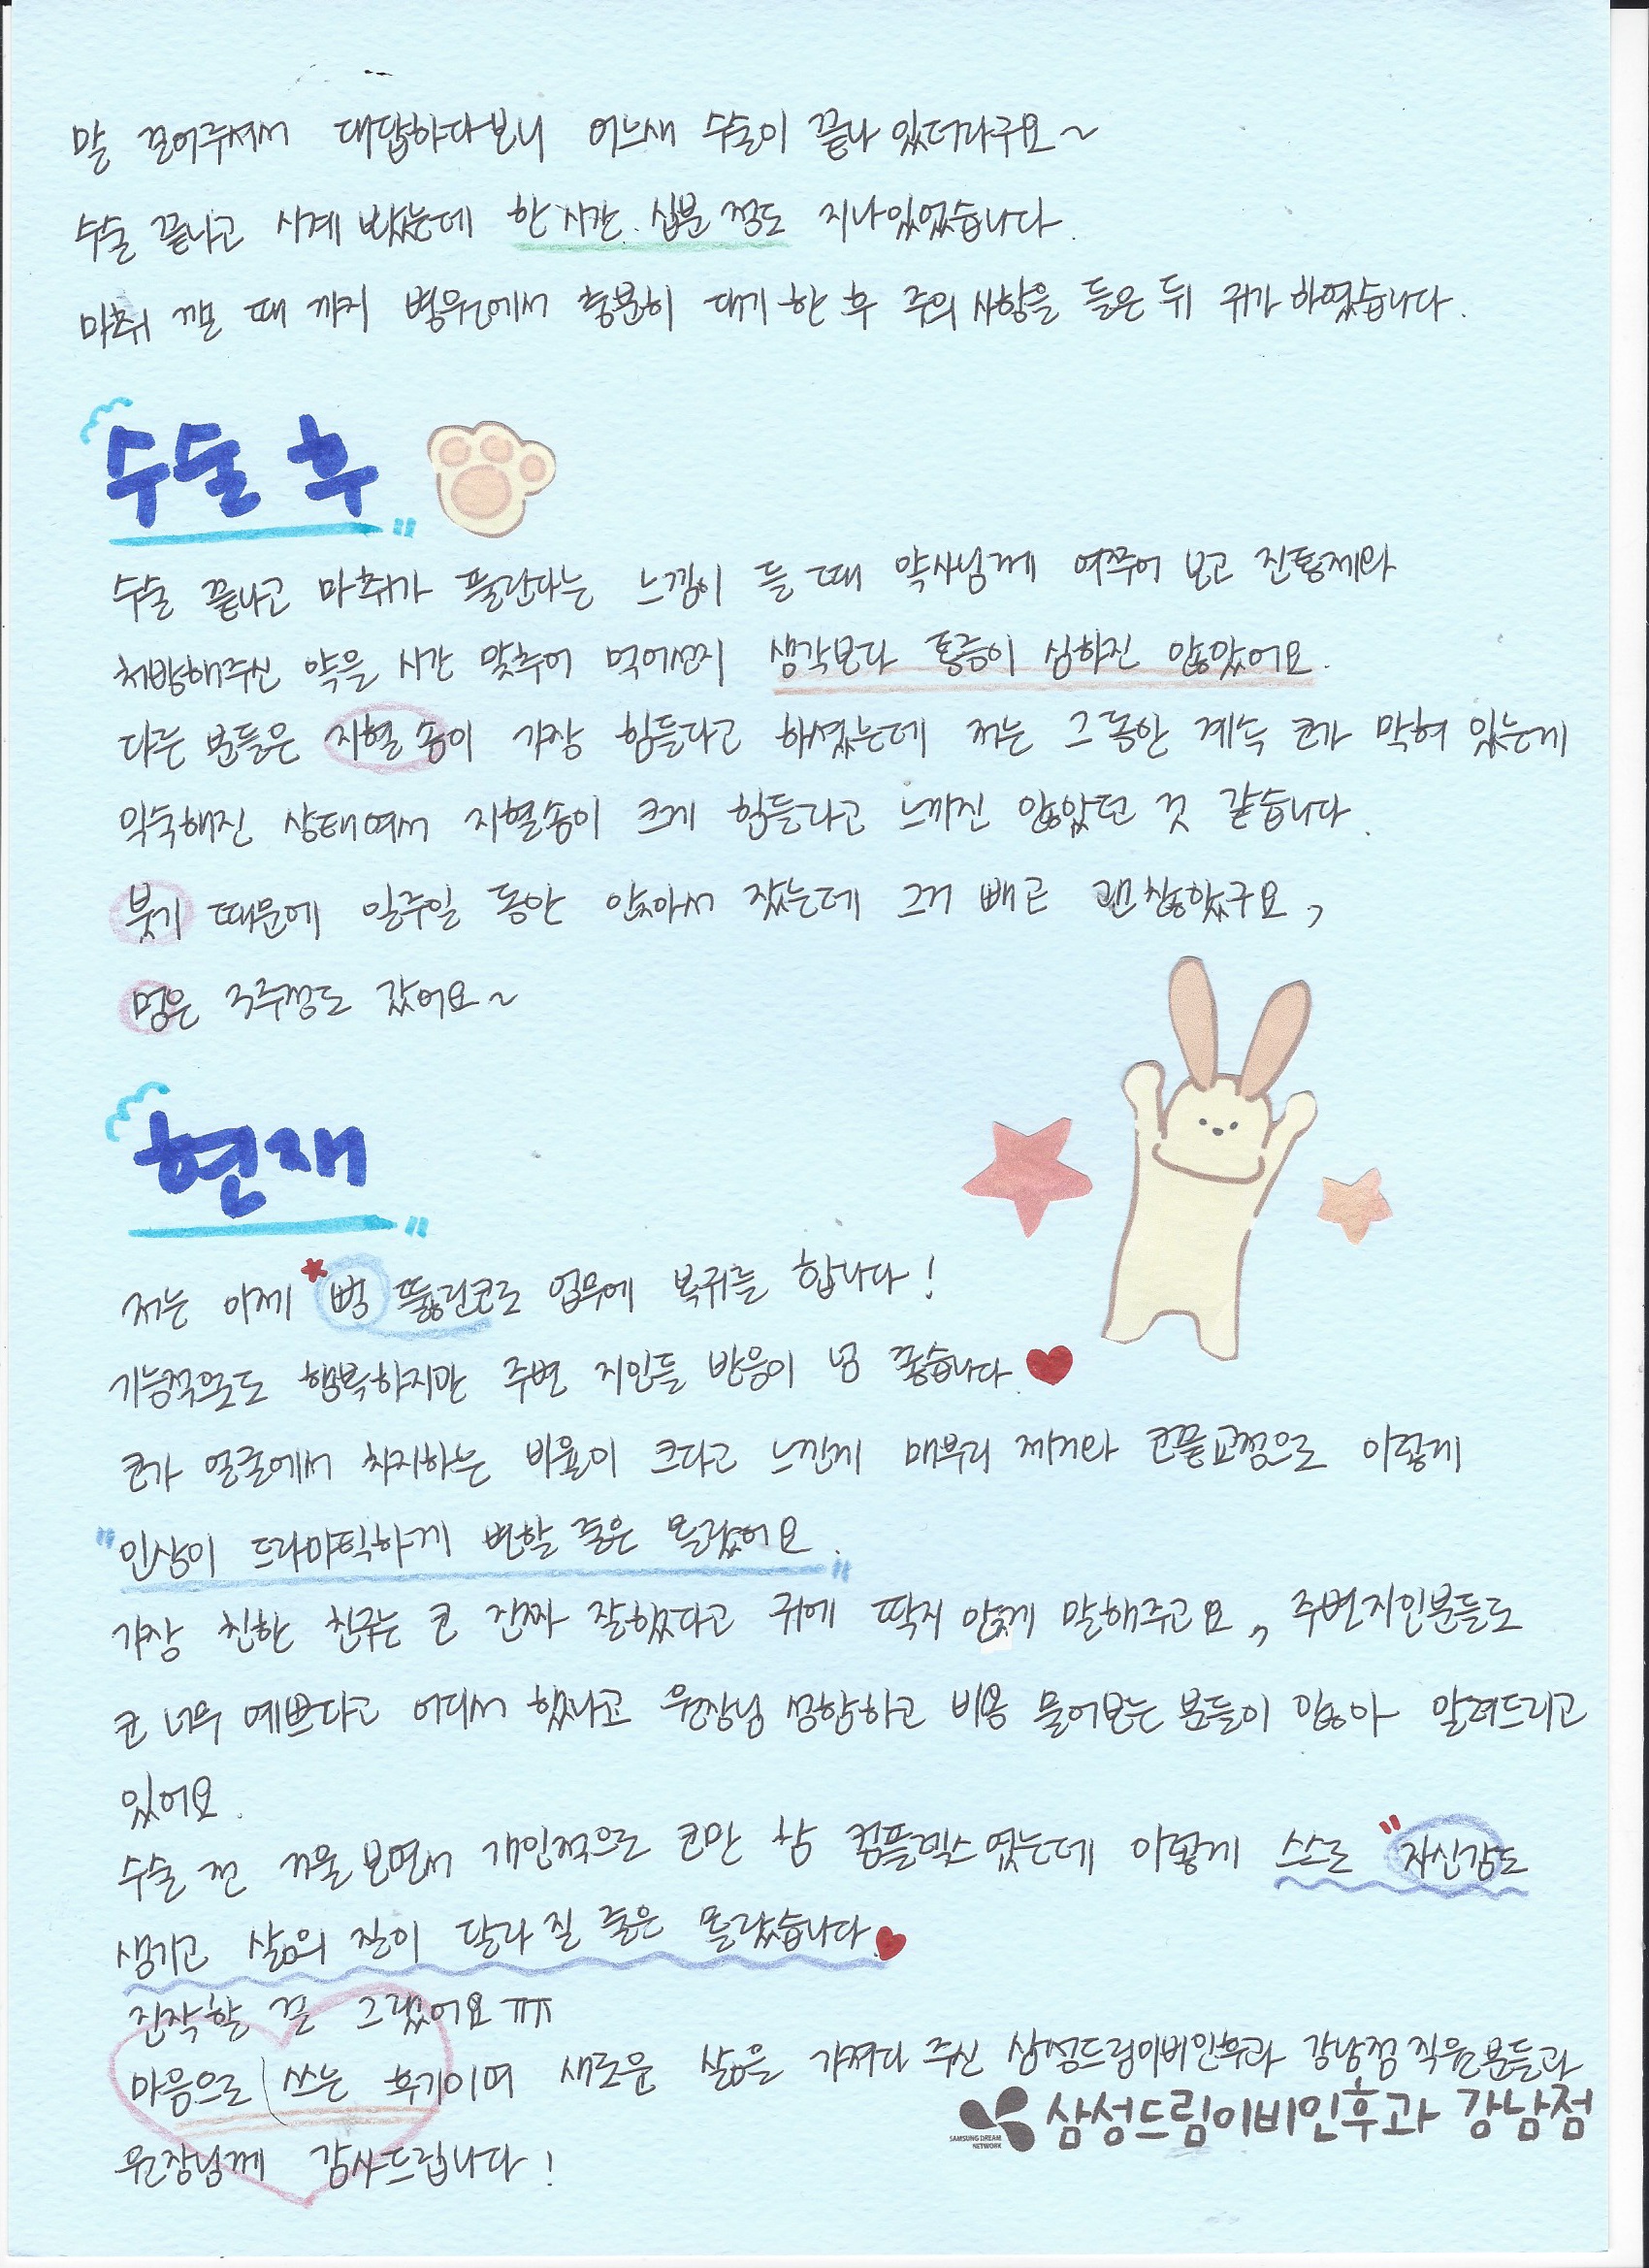 말 걸어주셔서 대답하다보니 어느새 수술이 끝나 있더라구요~
수술 끝나고 시계 봤는데 한 시간 십분 정도 지나있었습니다.
마취 깰 때 까지 병원에서 충분히 대기 한 후 주의 사항을 들은 뒤 귀가 하였습니다.
수술 후
수술 끝나고 마취가 풀린다는 느낌이 들 때 약사님께 여쭈어 보고 진통제와
처방해주신 약을 시간 맞추어 먹어선지 생각보다 통증이 심하진 않았어요.
다른 분들은 지혈 솜이 가장 힘들다고 하셨는데 저는 그동안 계속 코가 막혀 있는게
익숙해진 상태여서 지혈솜이 크게 힘들다고 느끼진 않았던 것 같습니다.
붓기 때문에 일주일 동안 앉아서 잤는데 그거 빼곤 괜찮았구요,
멍은 3주정도 갔어요~
현재
저는 이제 *뻥 뚫린코로 업무에 복귀를 합니다!
기능적으로도 행복하지만 주변 지인들 반응이 넘 좋습니다♥
코가 얼굴에서 차지하는 비율이 크다고 느낀게 매부리 제거와 코끝교정으로 이렇게
"인상이 드라마틱하게 변할 줄은 몰랐어요."
가장 친한 친구는 코 진짜 잘했다고 귀에 딱지 앉게 말해주고요,, 주변지인분들도
코 너무 예쁘다고 어디서 했냐고 원장님 성함하고 비용 물어보는 분들이 많아 알려드리고
있어요.
수술 전 거울 보면서 개인적으로 코만 참 컴플렉스 였는데 이렇게 스스로 "자신감도
생기고 삶의 질이 달라 질 줄은 몰랐습니다.♥
진작할 걸 그랬어요ㅠㅠ
마음으로 쓰는 후기이며 새로운 삶을 가져다 주신 삼성드림이비인후과 강남점 직원분들과
SAMSUNG DREAM NETWORK 삼성드림이비인후과 강남점
원장님께 감사드립니다!